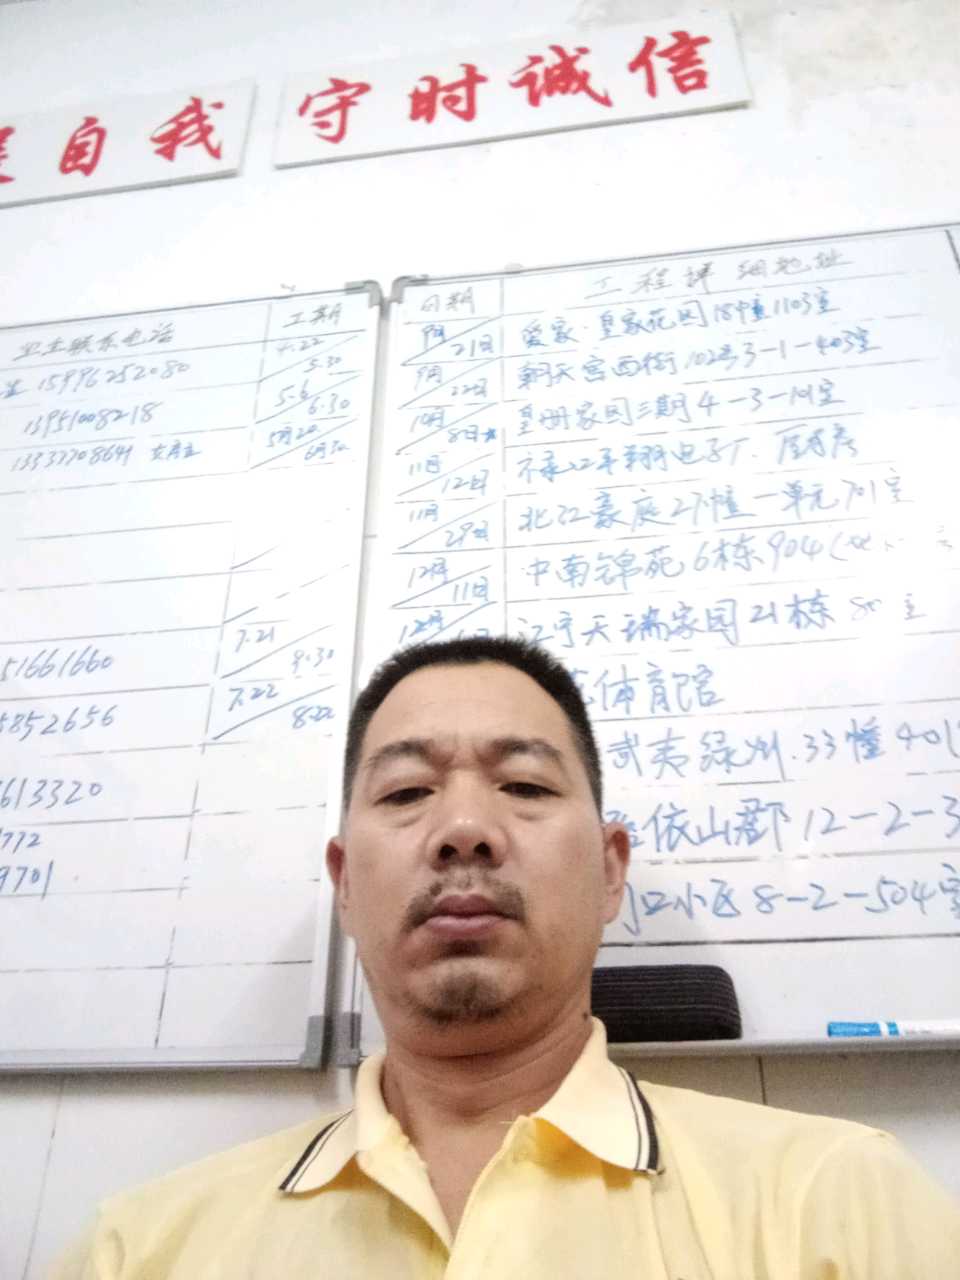 自我 守时诚信
业主联系电话 工期
15996252080 4.22 5.30
13951008218 5-6 6.30
13337708641 女房主 5月20 6月30
51661660 7.21 9.30
5852656 7.22 8.22
6613320
772
9701
日期 工程详细地址
9月 21日 爱家·皇家花园189幢1103室
9月 22日 朝天宫西街102号3-1-403室
10月 8日 皇册家园三期4-3-101室
11月 12日 禄口 翔电子厂.厨房
11月 29日 北江豪庭27幢一单元701室
12月 11日 中南锦苑6栋904
12月 江宁天瑞家园21栋
体育馆
武夷绿州.33幢401
依山郡12-2-3
门口小区8-2-504室